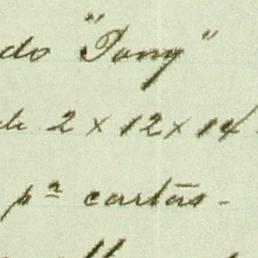 do "Pony"
de 2 x 12 x 14
pª cartās -